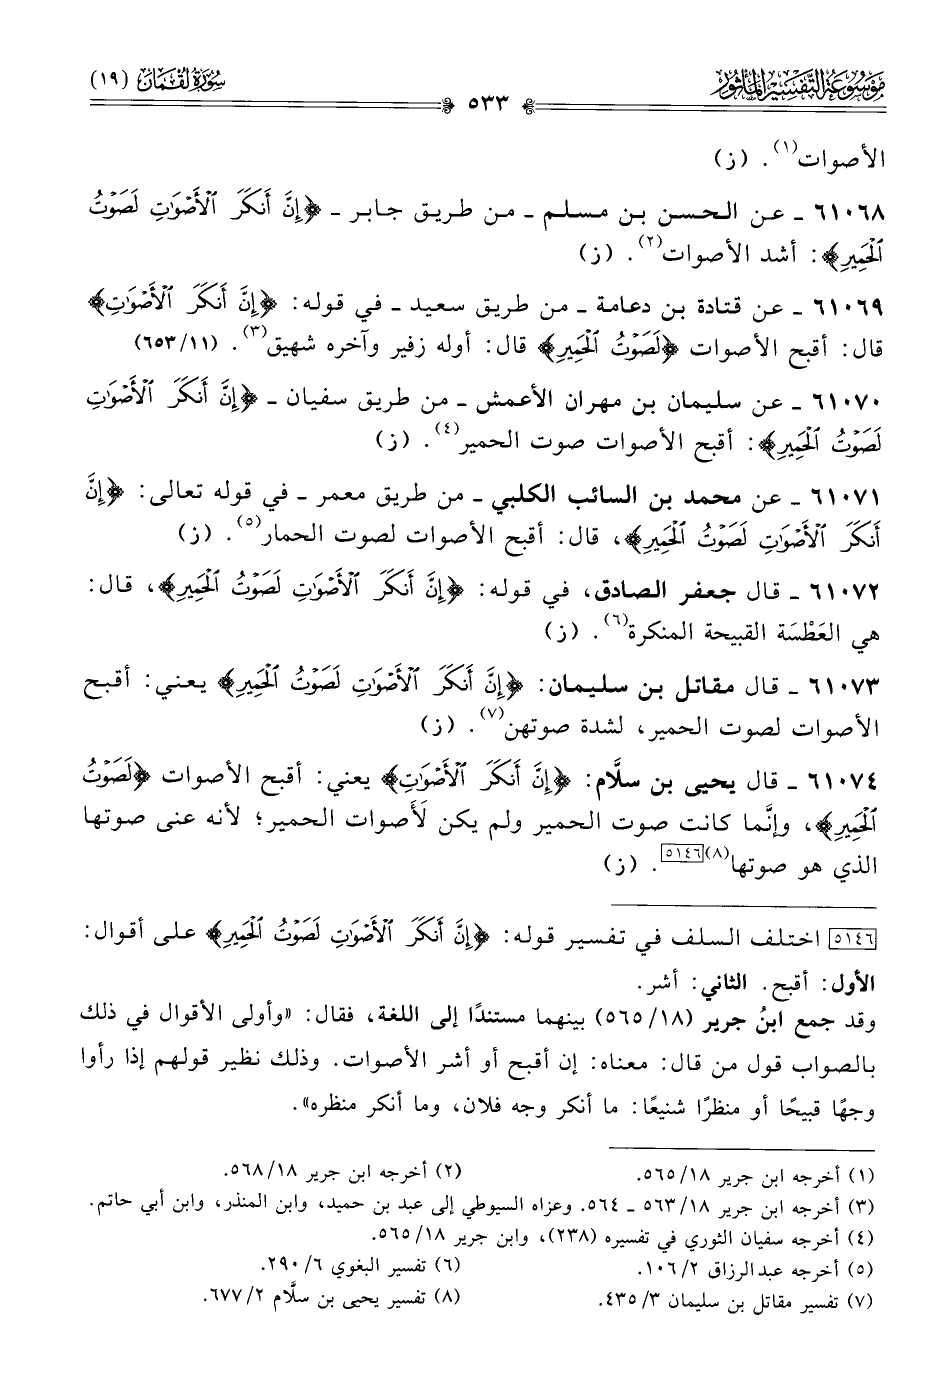 مَوْسُوعَةُ التَّفْسِيرِ المَأْثُور
٥٣٣
سُورَةُ لُقْمَان (١٩)
الأصوات(١). (ز)
٦١٠٦٨ ـ عن الحسن بن مسلم ـ من طريق جابر ـ ﴿إِنَّ أَنكَرَ ٱلْأَصْوَٰتِ لَصَوْتُ
ٱلْحَمِيرِ﴾: أشد الأصوات(٢). (ز)
٦١٠٦٩ ـ عن قتادة بن دعامة ـ من طريق سعيد ـ في قوله: ﴿إِنَّ أَنكَرَ ٱلْأَصْوَٰتِ﴾
قال: أقبح الأصوات ﴿لَصَوْتُ ٱلْحَمِيرِ﴾ قال: أوله زفير وآخره شهيق(٣). (١١/ ٦٥٣)
٦١٠٧٠ ـ عن سليمان بن مهران الأعمش ـ من طريق سفيان ـ ﴿إِنَّ أَنكَرَ ٱلْأَصْوَٰتِ
لَصَوْتُ ٱلْحَمِيرِ﴾: أقبح الأصوات صوت الحمير(٤). (ز)
٦١٠٧١ ـ عن محمد بن السائب الكلبي ـ من طريق معمر ـ في قوله تعالى: ﴿إِنَّ
أَنكَرَ ٱلْأَصْوَٰتِ لَصَوْتُ ٱلْحَمِيرِ﴾، قال: أقبح الأصوات لصوت الحمار(٥). (ز)
٦١٠٧٢ ـ قال جعفر الصادق، في قوله: ﴿إِنَّ أَنكَرَ ٱلْأَصْوَٰتِ لَصَوْتُ ٱلْحَمِيرِ﴾، قال:
هي العَطْسَة القبيحة المنكرة(٦). (ز)
٦١٠٧٣ ـ قال مقاتل بن سليمان: ﴿إِنَّ أَنكَرَ ٱلْأَصْوَٰتِ لَصَوْتُ ٱلْحَمِيرِ﴾ يعني: أقبح
الأصوات لصوت الحمير، لشدة صوتهن(٧). (ز)
٦١٠٧٤ ـ قال يحيى بن سلَّام: ﴿إِنَّ أَنكَرَ ٱلْأَصْوَٰتِ﴾ يعني: أقبح الأصوات ﴿لَصَوْتُ
ٱلْحَمِيرِ﴾، وإنَّما كانت صوت الحمير ولم يكن لَأصوات الحمير؛ لأنه عنى صوتها
الذي هو صوتها(٨)[٥١٤٦]. (ز)
[٥١٤٦] اختلف السلف في تفسير قوله: ﴿إِنَّ أَنكَرَ ٱلْأَصْوَٰتِ لَصَوْتُ ٱلْحَمِيرِ﴾ على أقوال:
الأول: أقبح. الثاني: أشر.
وقد جمع ابنُ جرير (١٨/ ٥٦٥) بينهما مستندًا إلى اللغة، فقال: «وأولى الأقوال في ذلك
بالصواب قول من قال: معناه: إن أقبح أو أشر الأصوات. وذلك نظير قولهم إذا رأوا
وجهًا قبيحًا أو منظرًا شنيعًا: ما أنكر وجه فلان، وما أنكر منظره».
(١) أخرجه ابن جرير ١٨/ ٥٦٥.
(٢) أخرجه ابن جرير ١٨/ ٥٦٨.
(٣) أخرجه ابن جرير ١٨/ ٥٦٣ ـ ٥٦٤. وعزاه السيوطي إلى عبد بن حميد، وابن المنذر، وابن أبي حاتم.
(٤) أخرجه سفيان الثوري في تفسيره (٢٣٨)، وابن جرير ١٨/ ٥٦٥.
(٥) أخرجه عبدالرزاق ٢/ ١٠٦.
(٦) تفسير البغوي ٦/ ٢٩٠.
(٧) تفسير مقاتل بن سليمان ٣/ ٤٣٥.
(٨) تفسير يحيى بن سلَّام ٢/ ٦٧٧.